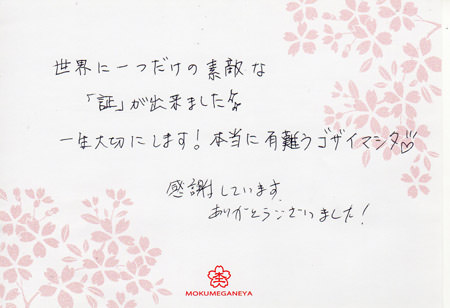 世界に一つだけの素敵な
「証」が出来ました
一生大切にします！本当に有難うゴザイマシタ♡
感謝しています
ありがとうございました！
MOKUMEGANEYA